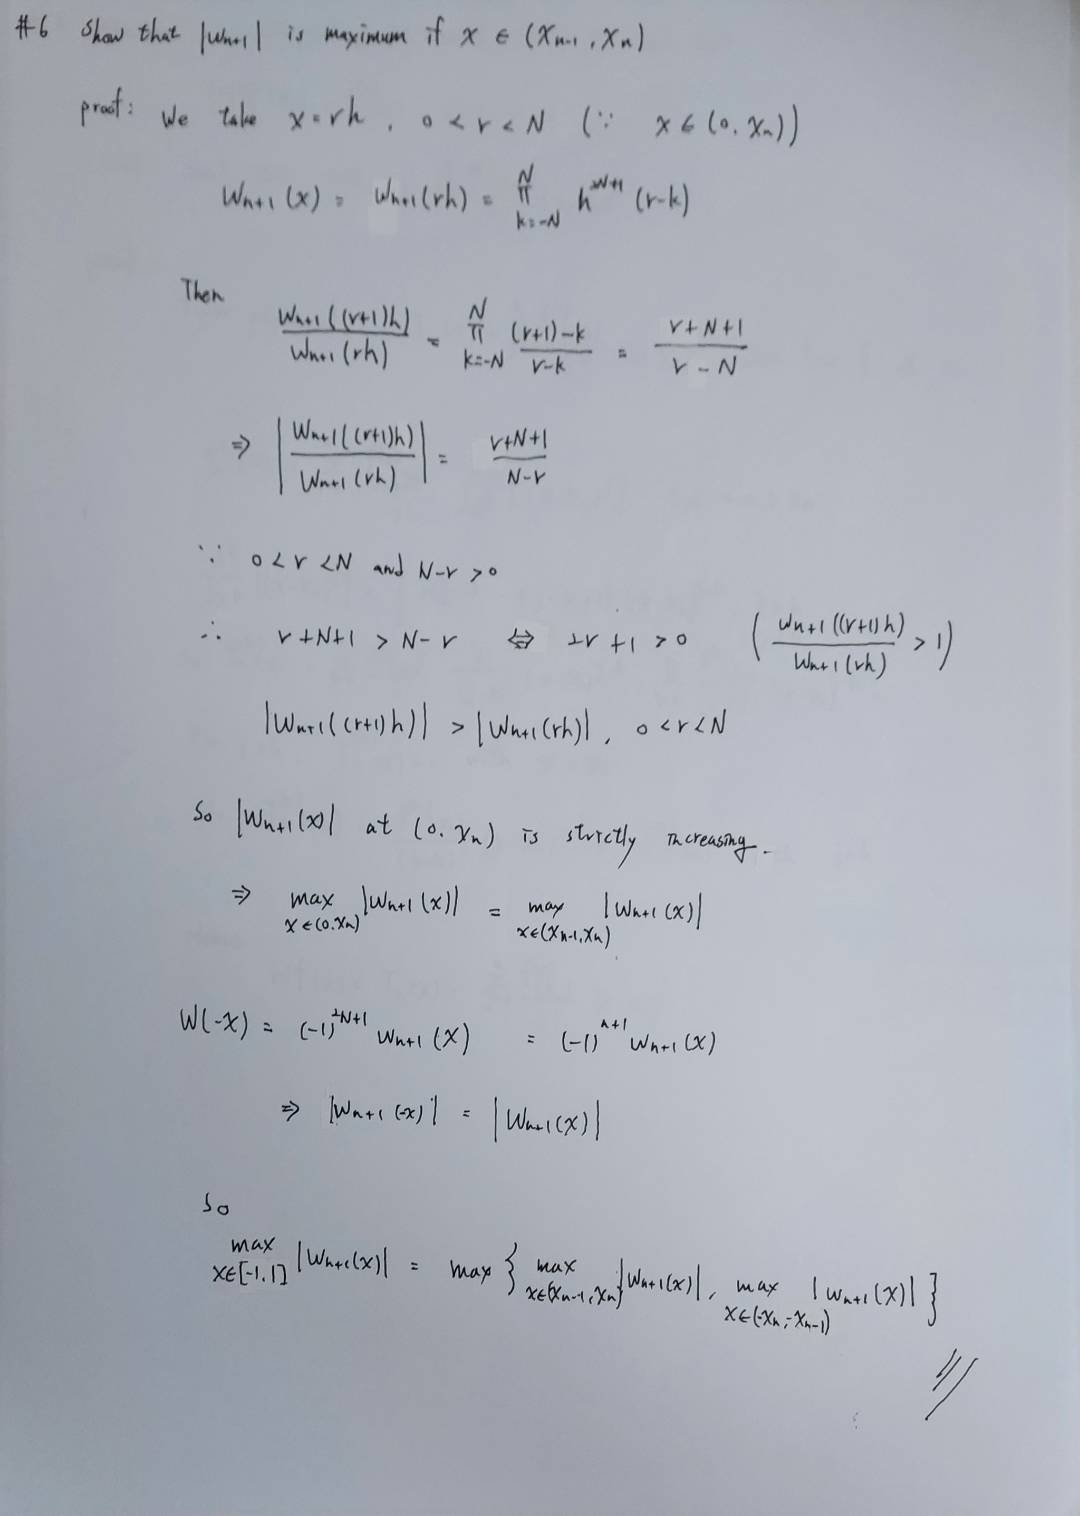 #6 Show that |Wn+1| is maximum if x ∈ (Xn-1, Xn)
proof: We take x=rh, 0<r<N (∵ x∈(0, Xn))
Wn+1(x) = Wn+1(rh) = ∏_{k=-N}^{N} h^{2N+1} (r-k)
Then
Wn+1((r+1)h) / Wn+1(rh) = ∏_{k=-N}^{N} ((r+1)-k) / (r-k) = (r+N+1) / (r-N)
⇒ |Wn+1((r+1)h) / Wn+1(rh)| = (r+N+1) / (N-r)
∵ 0<r<N and N-r>0
∴ r+N+1 > N-r ⇔ 2r+1>0 (Wn+1((r+1)h) / Wn+1(rh) > 1)
|Wn+1((r+1)h)| > |Wn+1(rh)|, 0<r<N
So |Wn+1(x)| at (0, Xn) is strictly increasing.
⇒ max_{x∈(0,Xn)} |Wn+1(x)| = max_{x∈(Xn-1,Xn)} |Wn+1(x)|
W(-x) = (-1)^{2N+1} Wn+1(x) = (-1)^{n+1} Wn+1(x)
⇒ |Wn+1(-x)| = |Wn+1(x)|
So
max_{x∈[-1,1]} |Wn+1(x)| = max { max_{x∈(Xn-1,Xn)} |Wn+1(x)|, max_{x∈(-Xn,-Xn-1)} |Wn+1(x)| }